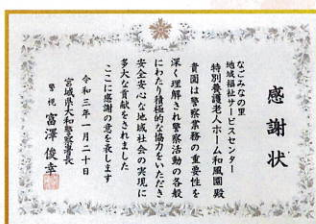 感謝状
なごみの里
地域福祉サービスセンター
特別養護老人ホーム和風園殿
貴園は警察業務の重要性を
深く理解され警察活動の各般
にわたり積極的な協力をいただき
安全安心な地域社会の実現に
多大な貢献をされました
ここに感謝の意を表します
令和三年一月二十日
宮城県大和警察署長
警視 富澤俊幸